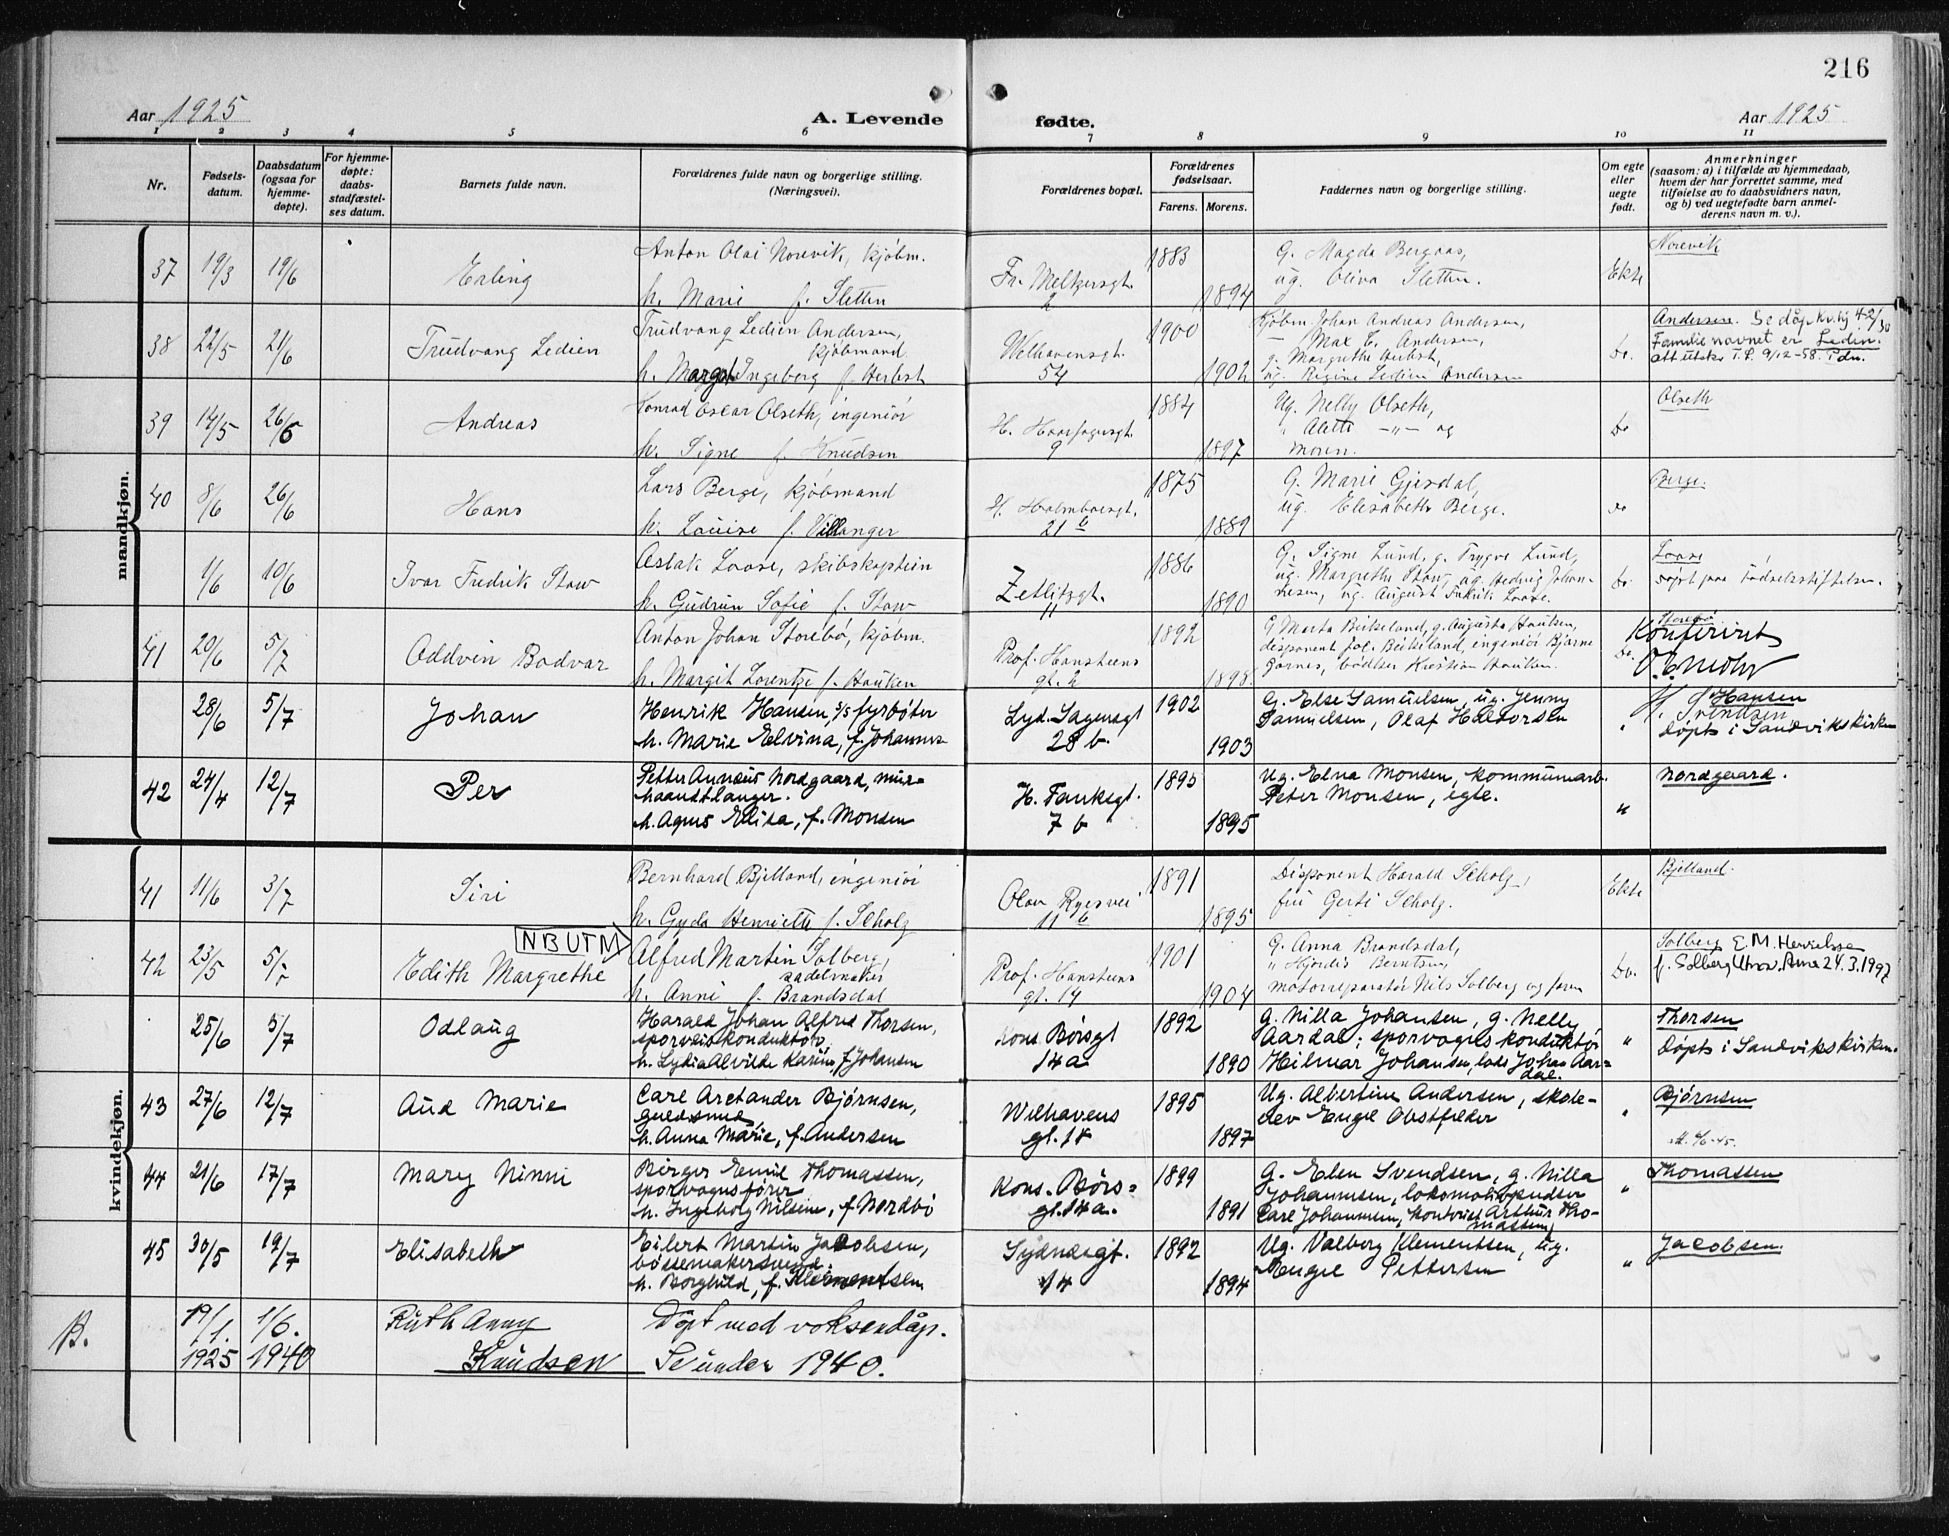 216
Aar 1925
A. Levende
fødte.
Aar 1925
1 2 3 4 5 6 7 8 9 10 11
Nr.
Fødsels-
datum.
Daabsdatum
(ogsaa for
hjemme-
døpte).
For hjemme-
døpte:
daabs-
stadfæstel-
ses datum.
Barnets fulde navn.
Forældrenes fulde navn og borgerlige stilling.
(Næringsvei).
Forældrenes bopæl.
Forældrenes
fødselsaar.
Farens. Morens.
Faddernes navn og borgerlige stilling.
Om egte
eller
uegte
født.
Anmerkninger
(saasom: a) i tilfælde av hjemmedaab,
hvem der har forrettet samme, med
tilføielse av to daabsvidners navn,
og b) ved uegtefødte barn anmel-
derens navn m. v.).
mandkjøn.
37 19/3 19/6 Erling
Anton Olai Norevik, kjøbm.
h. Marie f. Sletten
Fr. Meltzersgt.
2
1883 1894
G. Magda Bergaas,
ug. Oliva Sletten.
Ekte
Norevik
38 22/5 21/6 Trudvang Ledien
Trudvang Ledien Andersen,
kjøbmand
h. Margot Ingeberg f. Herbst
Welhavensgt.
54
1900 1902
Kjøbm Johan Andreas Andersen,
— Max E. Andersen,
g. Margrethe Herbst,
ug. Regine Ledien Andersen
Do.
Andersen. Se dåp kv. kj 42/30
Familienavnet er Ledin.
att. utsksr. T.P. 9/12-58. Pdn.
39 14/5 26/6 Andreas
Konrad Oscar Olseth, ingeniør
h. Signe f. Knudsen
H. Haarfagersgt.
9
1884 1897
Ug. Nelly Olseth,
" Alette —"— og
moren.
Do
Olseth
40 8/6 26/6 Hans
Lars Berge, kjøbmand
h. Louise f. Villanger
H. Holmboesgt.
21 b
1875 1889
G. Marie Gjesdal,
ug. Elisabeth Berge.
Do
Berge.
1/6 10/6 Ivar Fredrik Staw
Aslak Loose, skibskaptein
h. Gudrun Sofie f. Staw
Zetlitzgt.
11
1886 1890
G. Signe Lund, g. Trygve Lund,
ug. Margrethe Staw, ug. Hedvig Johan-
nesen, ug. August Fredrik Loose.
Do.
Loose
Døpt paa Fødselsstiftelsen.
41 20/6 5/7 Oddvin Bodvar
Anton Johan Storebø, kjøbm.
h. Margit Lorentze f. Hauken
Prof. Hansteens
gt. 2
1892 1898
G Marta Birkeland, g. Augusta Hauken,
disponent Joh. Birkeland, ingeniør Bjarne
Garnes, bødker Kristian Hauken.
Do.
Storebø
Konferirt
28/6 5/7 Johan
Henrik Hansen, s/s fyrbøter
h. Marie Elvina, f. Johannes-
Lyd. Sagensgt
28 b.
1902 1903
G. Else Samuelsen, ug. Jenny
Samuelsen, Olaf Halvorsen
"
Hansen
Døpt i Sandvikskirken
42 24/4 12/7 Per
Petter Annæus Nordgaard, mur-
haandtlanger.
h. Agnes Elisa, f. Monsen
H. Tanksgt.
7 b
1895 1895
Ug. Elna Monsen, kommunearb.
Peter Monsen, egte.
"
Nordgaard.
kvindekjøn.
41 11/6 3/7 Siri
Bernhard Bjelland, ingeniør
h. Gyda Henriette f. Scholz
Olav Ryesvei
11 b
1891 1895
Disponent Harald Scholz,
fru Gerti Scholz.
Ekte
Bjelland.
NB UTM
42 23/5 5/7 Edith Margrethe
Alfred Martin Solberg,
sadelmaker
h. Anni f. Brandsdal
Prof. Hansteens
gt. 14
1901 1904
G. Anna Brandsdal,
" Hjørdis Berntsen,
motorreparatør Nils Solberg og faren
Do.
Solberg E. M.
f. Solberg 24.3.1997
25/6 5/7 Odlaug
Harald Johan Alfred Thorsen,
sporveiskonduktør,
h. Lydia Alvilde Karine, f Johansen
Kons. Børsgt
14a
1892 1890
G. Nilla Johansen, g. Nelly
Aardal; sporvogns konduktør
Hilmar Johansen, lods Johan Aar-
dal.
"
Thorsen
Døpt i Sandvikskirken.
43 27/6 12/7 Aud Marie
Carl Arctander Bjørnsen,
guldsmed
h. Anna Marie, f. Andersen
Welhavens
gt. 18
1895 1897
Ug. Albertine Andersen, skole-
elev Engel Obstfelder
"
Bjørnsen
att. 4/6-45.
44 21/6 17/7 Mary Ninni
Birger Emil Thomassen,
sporvognsfører
h. Ingeborg Nilsine, f. Nordbø
Kons. Børs-
gt. 14a.
1899 1891
G. Elen Svendsen, g. Nilla
Johannesen, lokomotivpudser
Carl Johannesen, kontorist Arthur Tho-
massen,
"
Thomassen
45 30/5 19/7 Elisabeth
Eilert Martin Jacobsen,
bøssemakersvend.
h. Borghild, f. Klementsen
Sydnesgt.
14
1892 1894
Ug. Valborg Klementsen, ug.
Engel Pettersen
"
Jacobsen.
B. 19/1. 1925 1/6. 1940
Ruth Anny
Knudsen
Døpt med voksendåp.
Se under 1940.